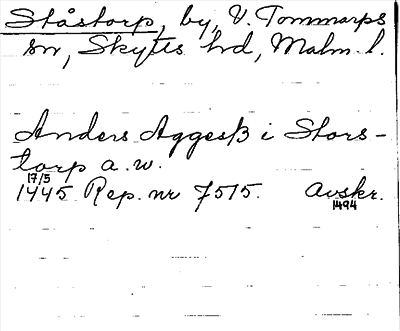 Ståstorp, by, V. Tommarps
sn, Skytts hd, Malm. l.
Anders Aggesß i Stors-
torp a. w.
17/5
1445 Rep. nr 7515. Avskr.
1494